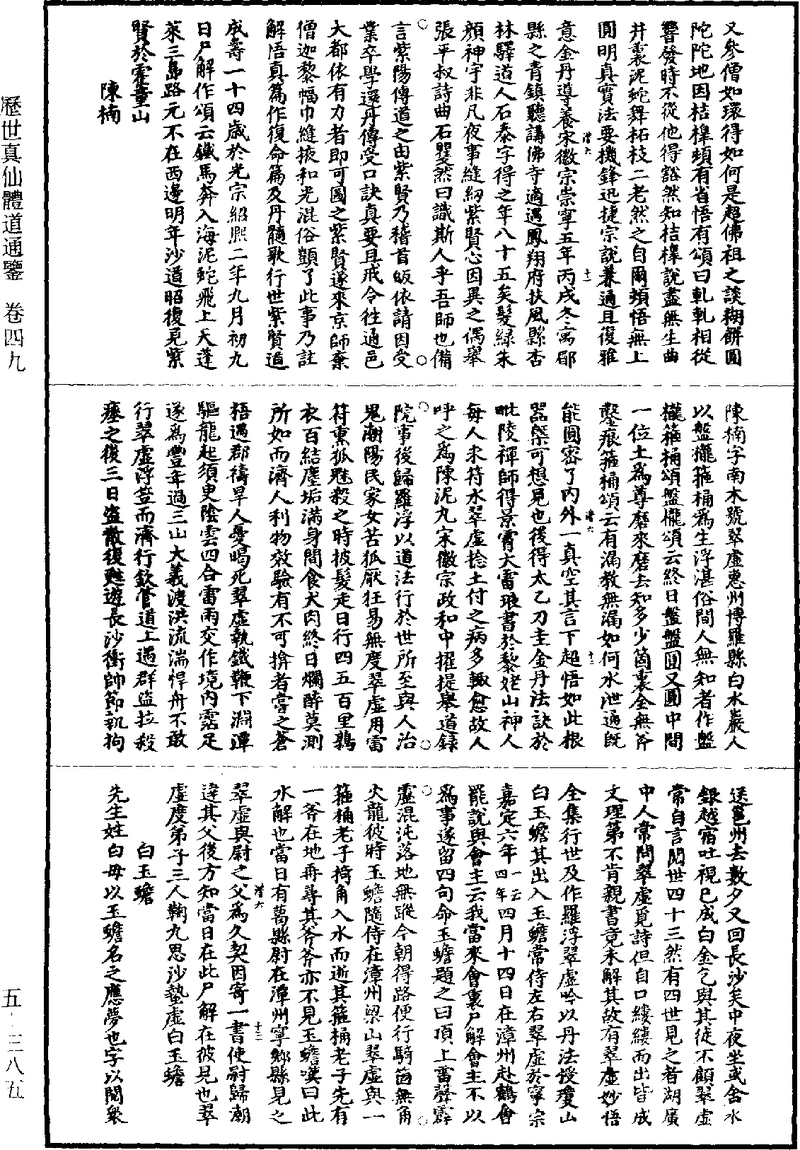 又參僧如環得如何是超佛祖之談糊餅圓
陀陀地因桔槔頓有省悟有頌曰軋軋相從
響發時不從他得豁然知桔槔說盡無生曲
井裏泥蛇舞柘枝二老然之自爾頓悟無上
圓明真實法要機鋒迅捷宗說兼通且復雅
意金丹導養宋徽宗崇寧五年丙戌冬寓郿
縣之青鎮聽講佛寺適遇鳳翔府扶風縣杏
林驛道人石泰字得之年八十五矣髮綠朱
顏神宇非凡夜事縫紉紫賢心因異之偶舉
張平叔詩曲石矍然曰識斯人乎吾師也備
言紫陽傳道之由紫賢乃稽首皈依請因受
業卒學還丹傳受口訣真要且戒令往通邑
大都依有力者即可圖之紫賢遂來京師棄
僧迦黎幅巾縫掖和光混俗顗了此事乃註
解悟真篇作復命篇及丹髓歌行世紫賢道
成壽一十四歲於光宗紹熙二年九月初九
日尸解作頌云鐵馬奔入海泥蛇飛上天蓬
萊三島路元不在西邊明年沙道昭復見紫
賢於霍童山
陳楠
陳楠字南木號翠虛惠州博羅縣白水巖人
以盤櫳箍桶為生浮湛俗間人無知者作盤
櫳箍桶頌盤櫳頌云終日盤盤圓又圓中間
一位土為尊磨來磨去知多少箇裏全無斧
鑿痕箍桶頌云有漏教無漏如何水泄通既
能圓密了內外一真空其言下超悟如此根
器槩可想見也後得太乙刀圭金丹法訣於
毗陵禪師得景霄大雷琅書於黎姥山神人
每人求符水翠虛捻土付之病多輒愈故人
呼之為陳泥丸宋徽宗政和中擢提舉道錄
院事後歸羅浮以道法行於世所至與人治
鬼潮陽民家女苦狐厭狂易無度翠虛用雷
符熏狐魅殺之時披髮走日行四五百里鶉
衣百結塵垢滿身間食犬肉終日爛醉莫測
所如而濟人利物效驗有不可揜者嘗之蒼
梧遇郡禱旱人憂暍死翠虛執鐵鞭下淵潭
驅龍起須臾陰雲四合雷雨交作境內霑足
遂為豐年過三山大義渡洪流湍悍舟不敢
行翠虛浮笠而濟行欽管道上遇群盜拉殺
瘞之後三日盜散復甦遊長沙衝帥節執拘
送邕州去數夕又回長沙矣中夜坐或含水
銀越宿吐視已成白金乞與其徒不顧翠虛
常自言閱世四十三然有四世見之者湖廣
中人常問翠虛覓詩但自口縷縷而出皆成
文理第不肯親書竟未解其故有翠虛妙悟
全集行世及作羅浮翠虛吟以丹法授瓊山
白玉蟾其出入玉蟾常侍左右翠虛於寧宗
嘉定六年一云四年四月十四日在漳州赴鶴會
罷說與會主云我當來會裏尸解會主不以
為事遂留四句命玉蟾題之曰頂上雷聲霹
靂混沌落地無蹤今朝得路便行騎箇無角
火龍彼時玉蟾隨侍在漳州梁山翠虛與一
箍桶老子掎角入水而逝其箍桶老子先有
一斧在地再尋其斧斧亦不見玉蟾嘆曰此
水解也當日有葛縣尉在潭州寧鄉縣見之
翠虛與尉之父為久契因寄一書使尉歸潮
達其父後方知當日在此尸解在彼見也翠
虛度弟子三人鞠九思沙蟄虛白玉蟾
白玉蟾
先生姓白母以玉蟾名之應夢也字以閱衆
歷世真仙體道通鑒 卷四九
五·三八五